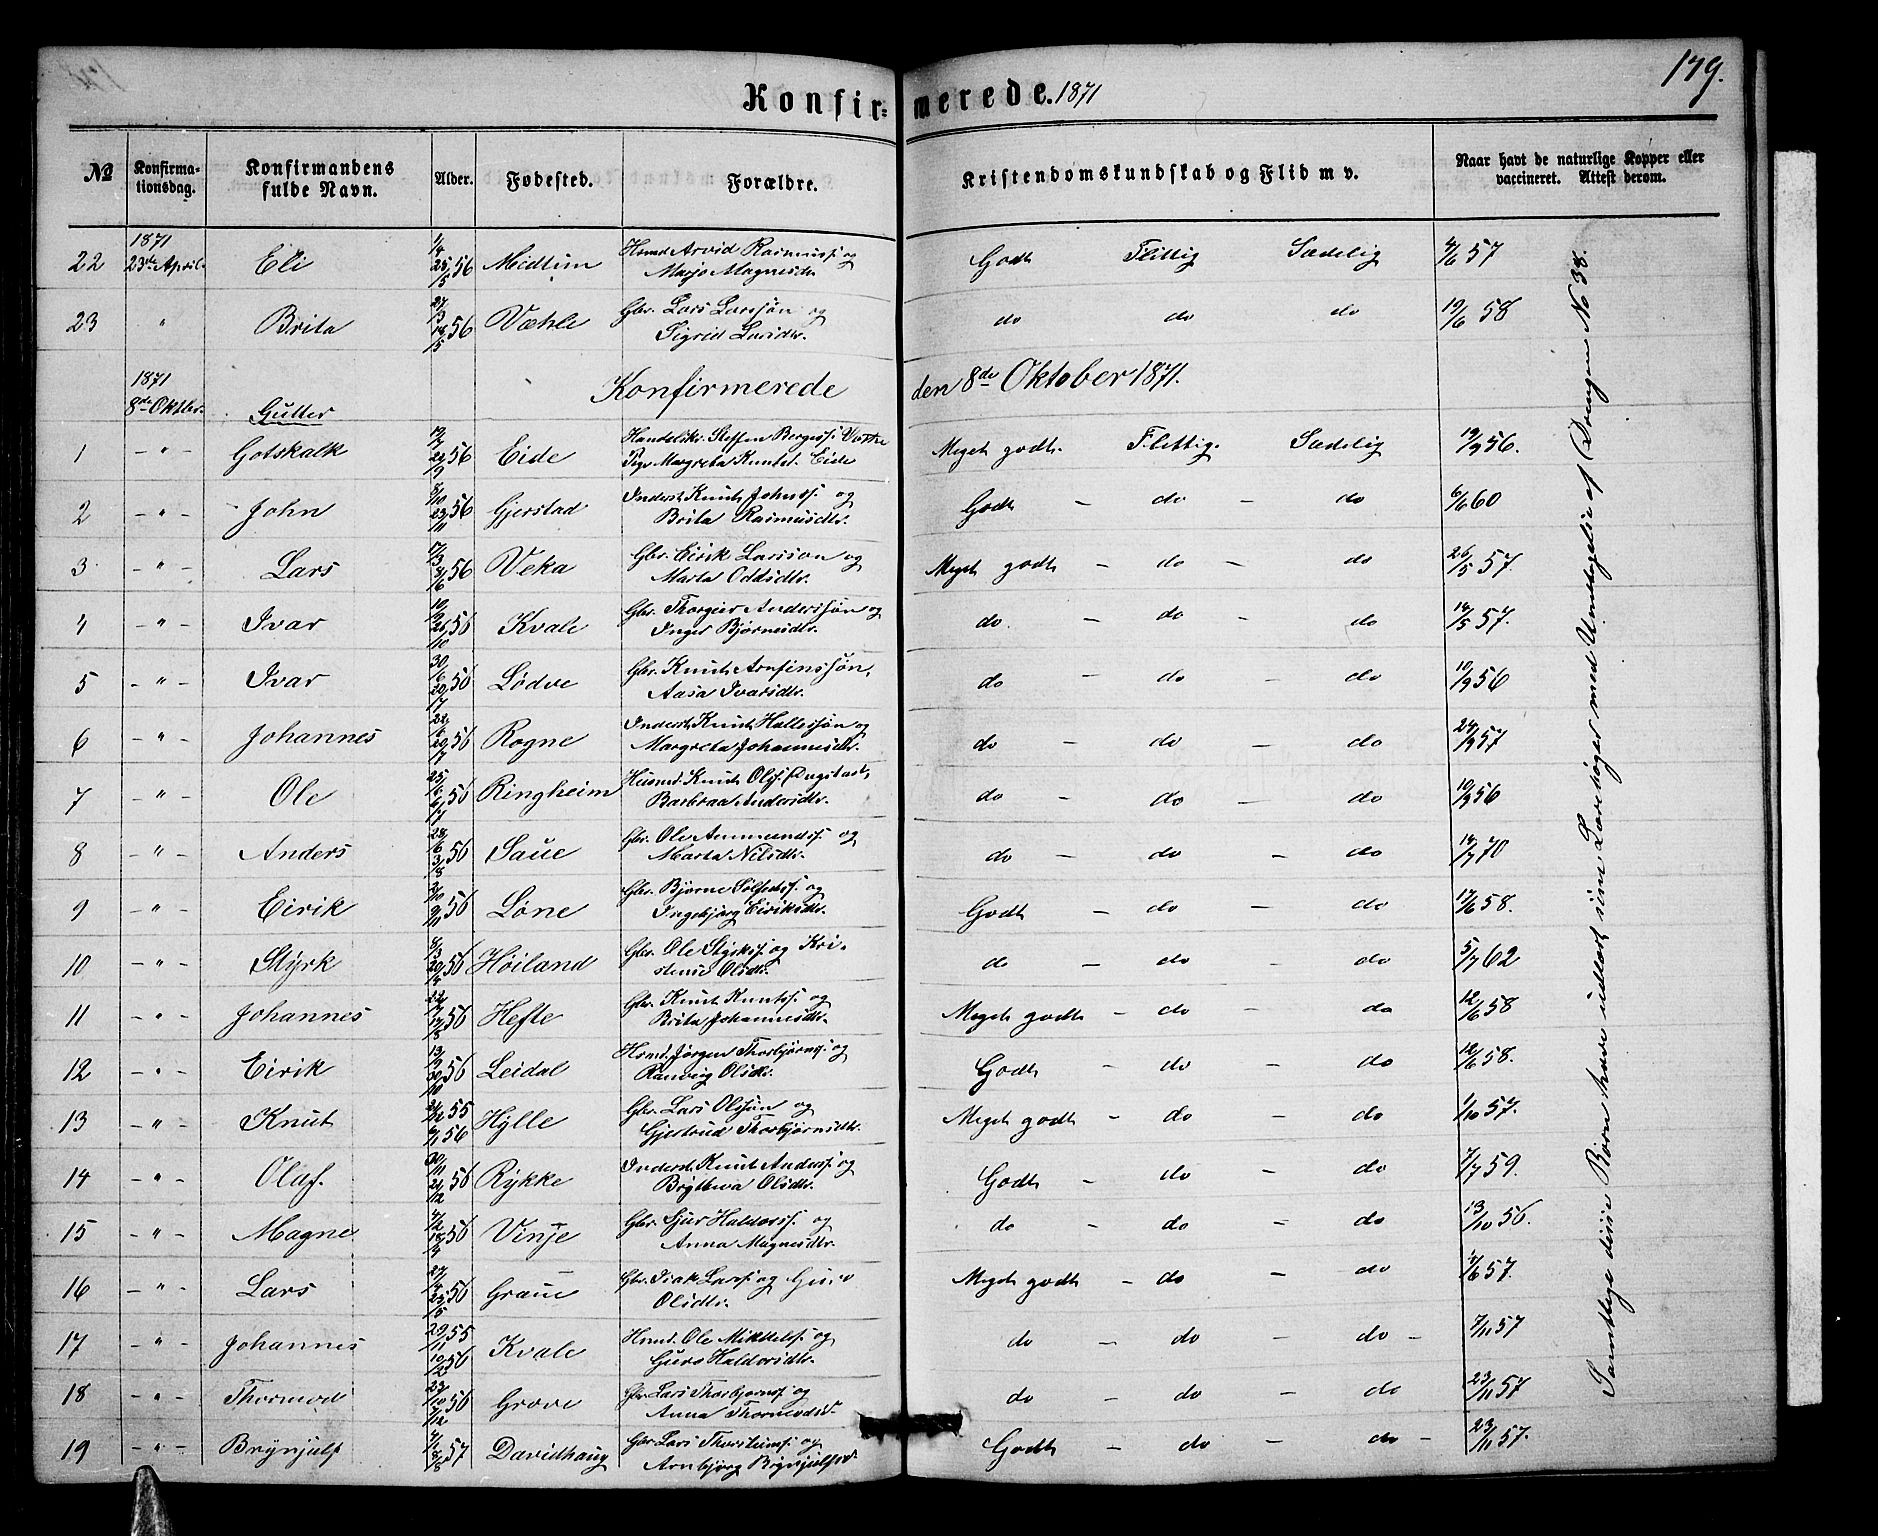 179.
Konfirmerede. 1871
№ Konfirmationsdag. Konfirmandens fulde Navn. Alder. Fødested. Forældre. Kristendomskundskab og Flid m v. Naar havt de naturlige Kopper eller vaccineret. Attest derom.
22 1871 23de April Eli 1/4 25/5 56 Midtun Hsmd Arvid Rasmuss. og Marjo Magnesdtr. Godt Flittig Sædelig 4/6 57
23 " Brita 27/3 18/5 56 Væhle Gbr. Lars Larssøn og Sigrid Larsdtr. do do do 19/6 58
1871 8de Oktbr. Konfirmerede den 8de Oktober 1871.
Gutter
1 - " - Gotskalk 56 Eide Handelskr. Steffen Bergess. Pige Margreta Knutsd. Eide Meget godt. Flittig. Sædelig 19/9 56.
2 - " - John 8/10 23/11 56 Gjerstad Inderst. Knut Johnss. og Brita Rasmusdtr. Godt - do - do 6/6 60
3 - " - Lars 17/3 8/6 56 Veka Gbr. Eirik Larsson og Marta Oddsdtr. Meget godt - do - do 26/5 57.
4 - " - Ivar 56 Kvale Gbr. Thorgier Anderssøn og Inger Bjørnesdtr. do. - do - do 14/5 57.
5 - " - Ivar 30/6 20/7 56 Lødve Gbr. Knut Arnfinssøn, Aasa Ivarsdtr. do - do - do 19/9 56
6 - " - Johannes 22/6 20/7 56 Rogne Inderst. Knut Hallessøn og Margreta Johannesdtr. do - do - do 24/9 57
7 - " - Ole 25/6 6/7 56 Ringheim Husmd. Knut Olss. Engstad, Barbraa Andersdtr. do - do - do 19/9 56
8 - " - Anders 28/6 3/8 56 Saue Gbr. Ole Ammunds. og Marta Nilsdtr. do - do - do 14/7 70
9 - " - Eirik 3/10 9/11 56 Løne Gbr. Bjørne Sølfests. og Ingebjørg Eiriksdtr. Godt - do - do 17/6 58.
10 - " - Styrk 8/3 20/4 56 Høiland Gbr. Ole Styrkss. og Kristense Olsdtr. do - do - do 5/7 62
11 - " - Johannes 56 Hefte Gbr. Knut Knuts. og Brita Johannesdtr. Meget godt - do - do 12/6 58
12 - " - Eirik 13/9 30/10 56 Leidal Hsmd. Jørgen Thorbjørns. og Ranveig Olsdtr. Godt - do - do 12/6 58.
13 - " - Knut 55 6/1 56 Hylle Gbr. Lars Olssøn og Gjertrud Thorbjørnsdtr. Meget godt - do - do 1/10 57.
14 - " - Olaf. 30/11 21/12 56 Rykke Inderst. Knut Anderss. og Brytteva Olsdtr. Godt - do - do 7/7 59.
15 - " - Magne 4/2 18/4 56 Vinje Gbr. Sjur Haldorss. og Anna Magnesdtr. do - do - do 13/10 56.
16 - " - Lars 27/4 25/5 56 Graue Gbr. Isak Larss. og Guro Olsdtr. Meget godt - do - do 4/6 57.
17 - " - Johannes 29/11 55 10/2 56 Kvale Hsmd. Ole Mikkels. og Guro Haldorsdtr. do - do - do - 7/11 57
18 - " - Thormod 23/10 7/12 56 Grove Gbr. Lars Thorbjørnss. og Anna Thormodsd. do - do - do 23/11 57
19 - " - Brynjulf 57 Davidhaug Gbr. Lars Thorstenss. og Arnbjørg Brynjulfsd. Godt - do - do - 23/11 57.
Samtlige disse Børn have udlært sine Lærebøger med Undtagelse af Drengen No 38.